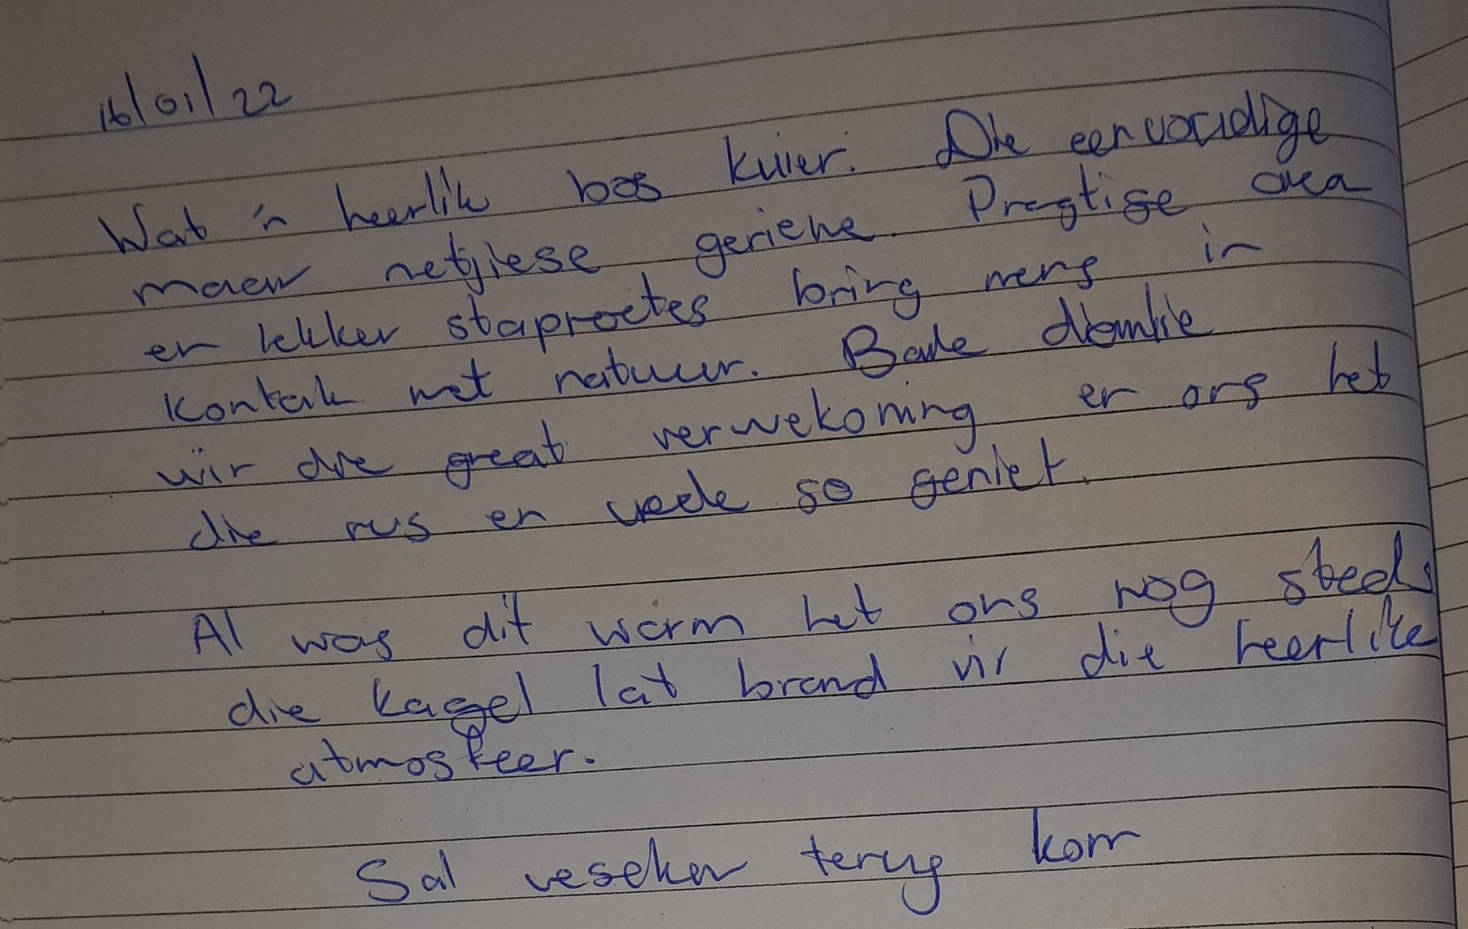 16/01/22
Wat 'n heerlik bos kuier. Die eenvoudige
maar netjiese geriewe. Pragtige area
en lekker staproetes bring mens in
kontak met natuur. Baie dankie
vir die great verwekoming en ons het
die rus en vrede so geniet.
Al was dit warm het ons nog steeds
die kagel lat brand vir die heerlike
atmosfeer.
Sal veseker terug kom